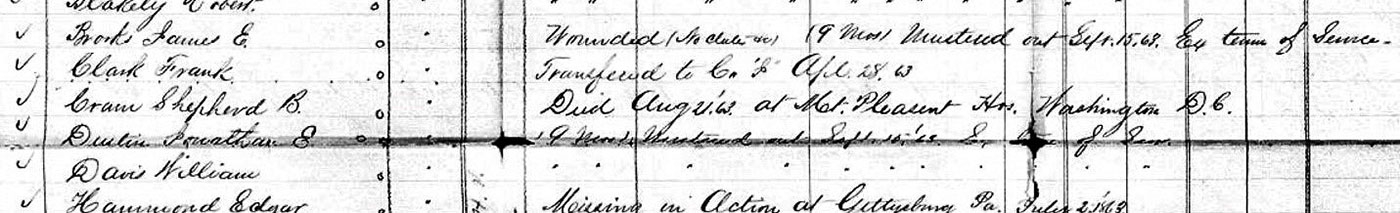 Blakely Robert. " " " " " " " "
Brooks James E. Wounded (No date &c) (9 Mos) Mustered out Sept. 15, 63. Ex term of Service -
Clark Frank Transfered to Co "F" Apl. 28, 63
Cram Shepherd B. Died Aug 21, '63 at Mt. Pleasent Hos. Washington D. C.
E 9 Mos Mustered out Sept. 15, '63 of Ser.
Davis William " " " " " " " "
Hammond Edgar Missing in Action at Gettysburg Pa. July 2, 1863